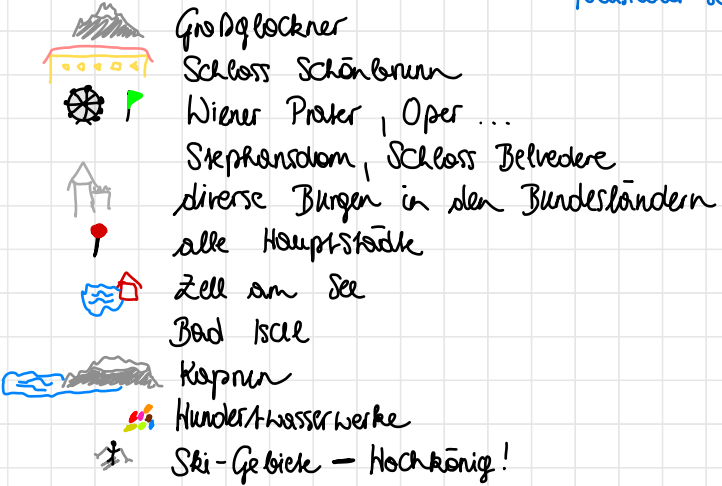 Großglockner
Schloss Schönbrunn
Wiener Prater, Oper ...
Stephansdom, Schloss Belvedere
diverse Burgen in den Bundesländern
alle Hauptstädte
Zell am See
Bad Ischl
Kaprun
Hundertwasserwerke
Ski-Gebiete – Hochkönig!